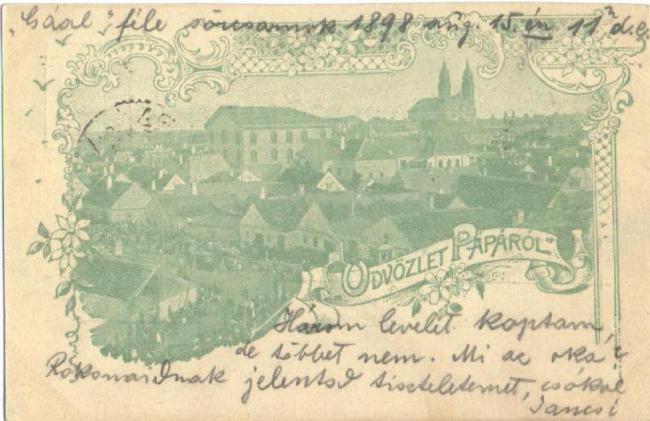 "Gaál" féle sörcsarnok 1898 aug. 15.én 11 d.e.
ÜDVÖZLET PÁPÁRÓL
Három levelet kaptam,
de többet nem. Mi az oka?
Rokonaidnak jelentsd tiszteletemet, csókol
Jancsi